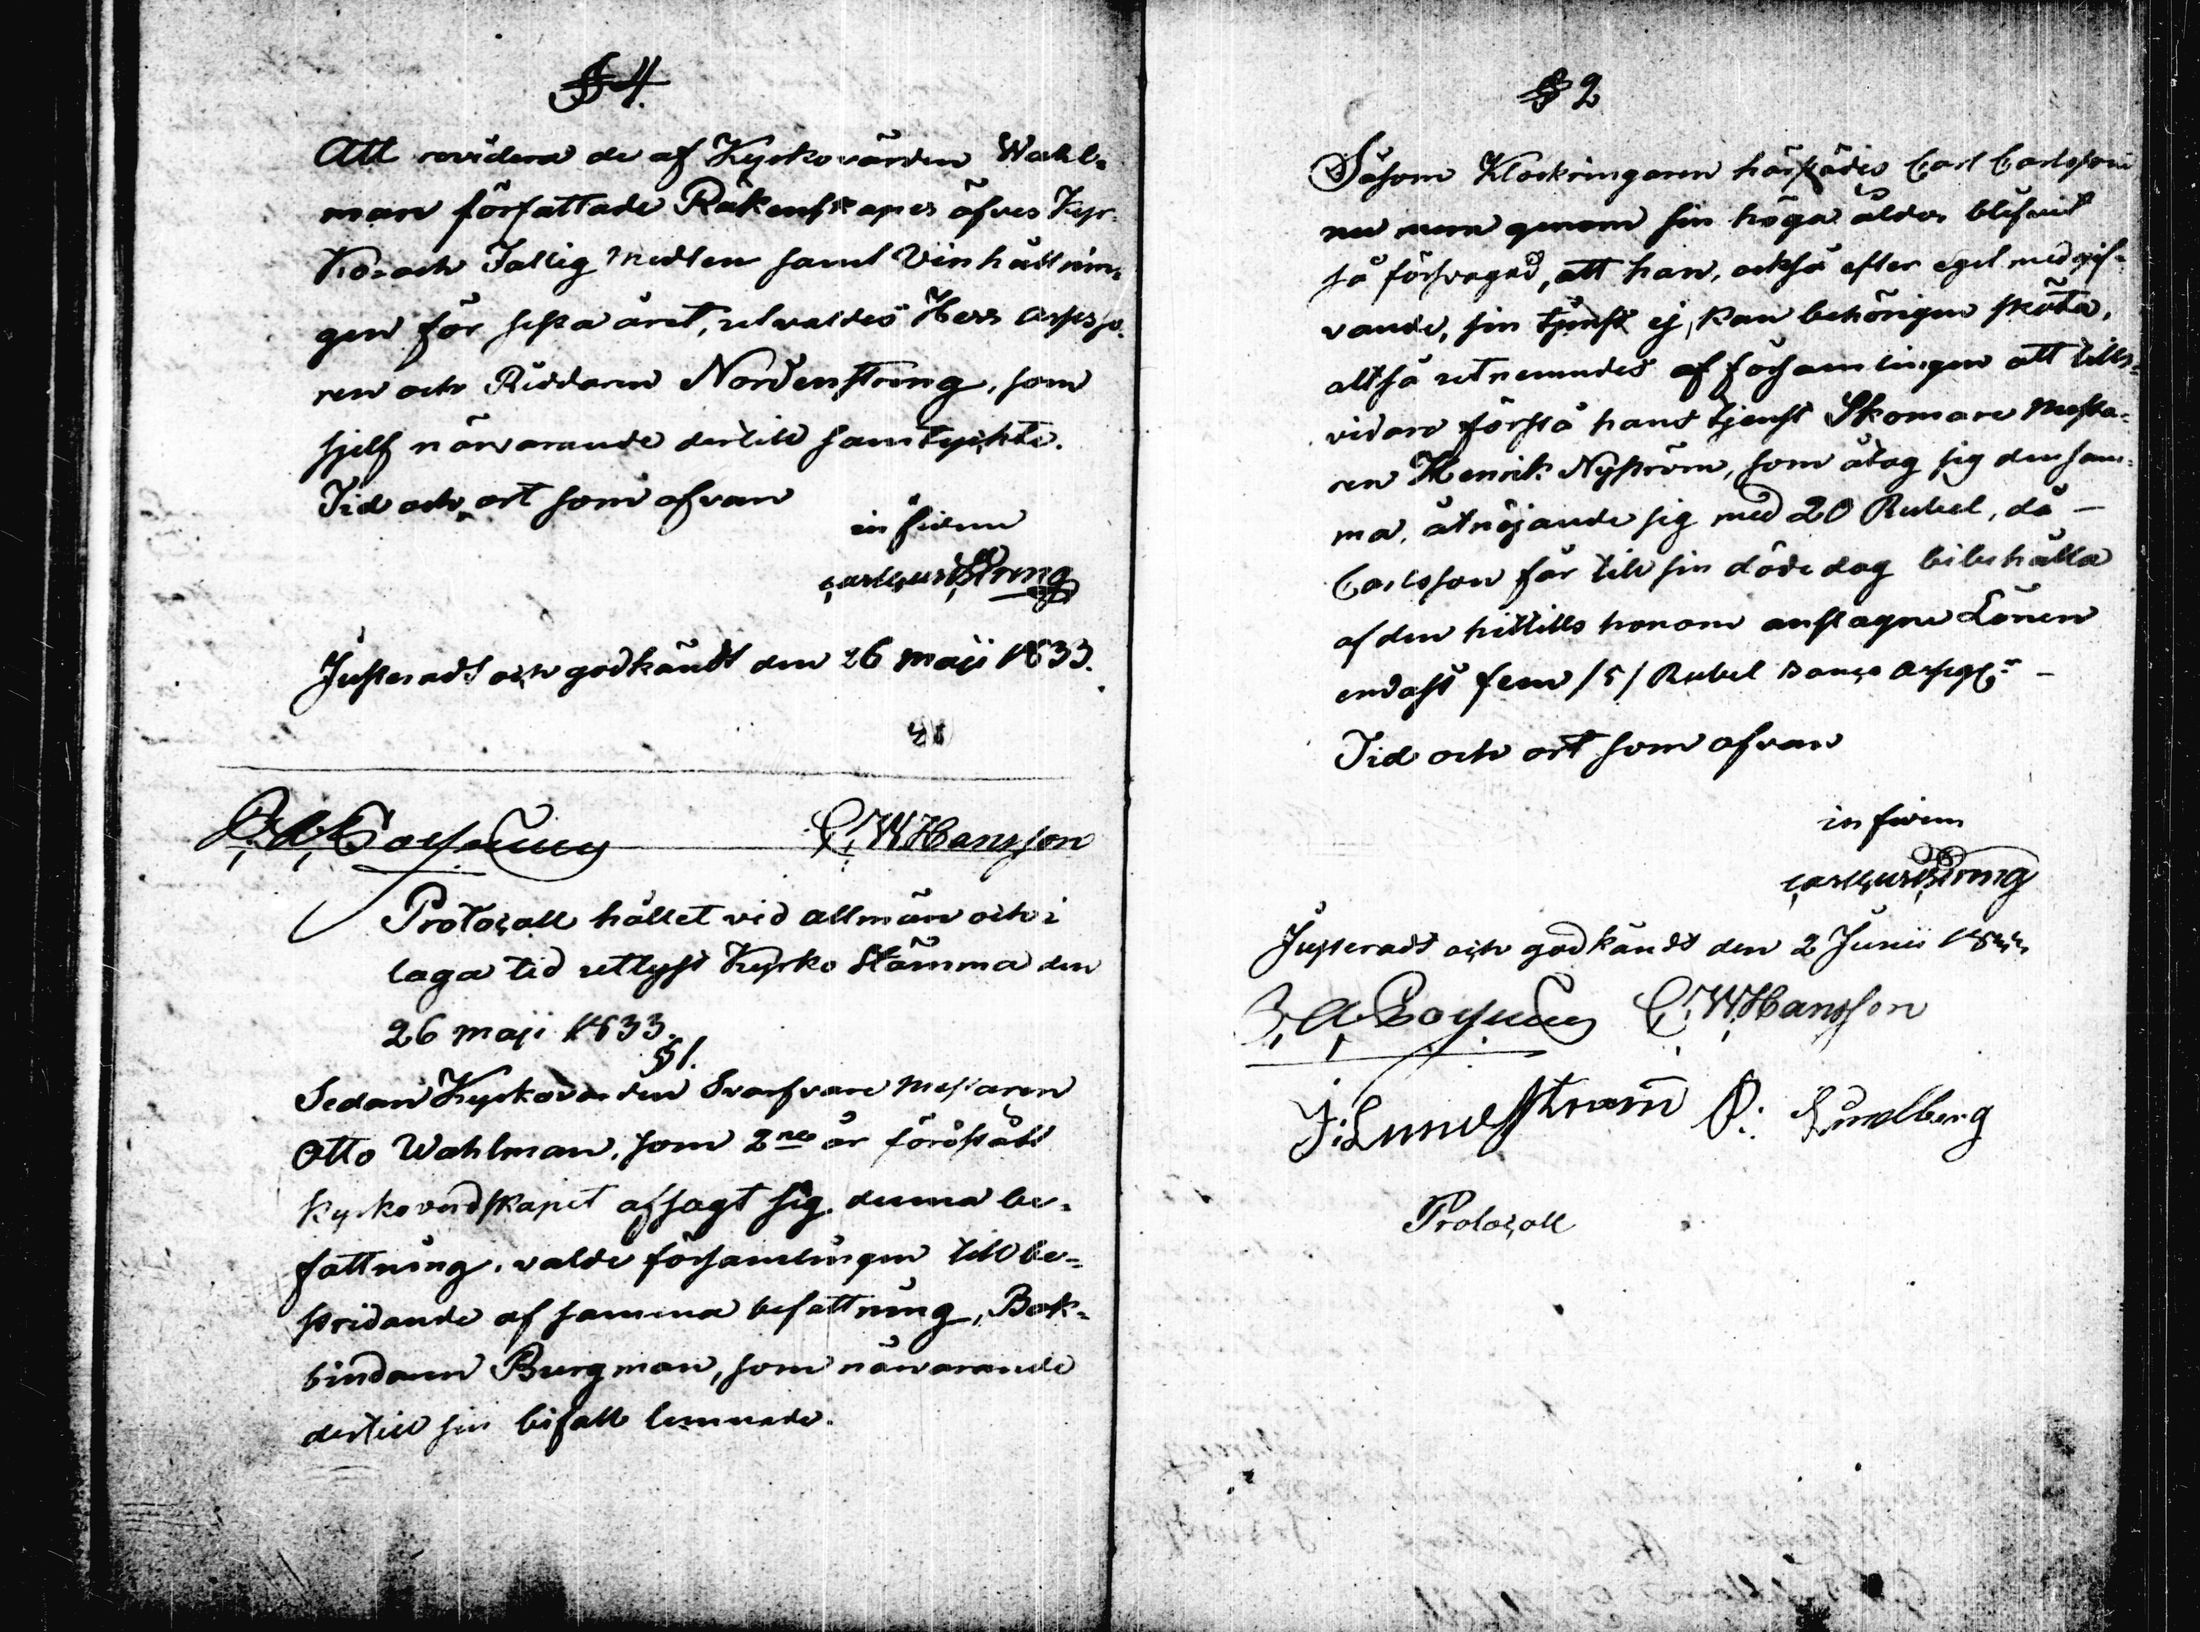 § 4.
Att revidera de af Kyrkovärden Wahl-
man författade Räkenskaper öfver Kyr-
ko- och Fattig Medlen samt Vinhållnin-
gen för sista året, utvaldes Herr Assesso-
ren och Riddaren Nordenstreng, som
sjelf närvarande dertill samtyckte.
Tid och ort som ofvan
in fidem
Justeradt och godkändt den 26 Maji 1833.
C. W. Hansson
Protocoll hållet vid allmän och i
laga tid utlyst Kyrko Stämma den
26 Maji 1833.
§ 1.
Sedan Kyrkovärden Svarfvare Mästaren
Otto Wahlman, som 2ne år förestått
kyrkovärdskapet afsagt sig denna be-
fattning, valde församlingen till be-
stridande af samma befattning, Bok-
bindaren Burgman, som närvarande
dertill sin bifall lemnade.
§ 2
Såsom Klockringaren härstädes Carl Carlsson
nu mera genom sin höga ålder blifvit
så försvagad, att han, också efter eget medgif-
vande, sin tjenst ej kan behörigen sköta,
altså utnemndes af församlingen att tills-
vidare förestå hans tjenst Skomare Mästa-
ren Henrik Nyström, som åtog sig densam-
ma, åtnöjande sig med 20 Rubel, då —
Carlsson får till sin dödedag bibehålla
af den hittills honom anslagne Lönen
endast fem /5/ Rubel Banco Assign: —
Tid och ort som ofvan
in fidem
Justeradt och godkändt den 2 Junii 1833
C. W. Hansson
J: Lundström P: Sundberg
Protocoll